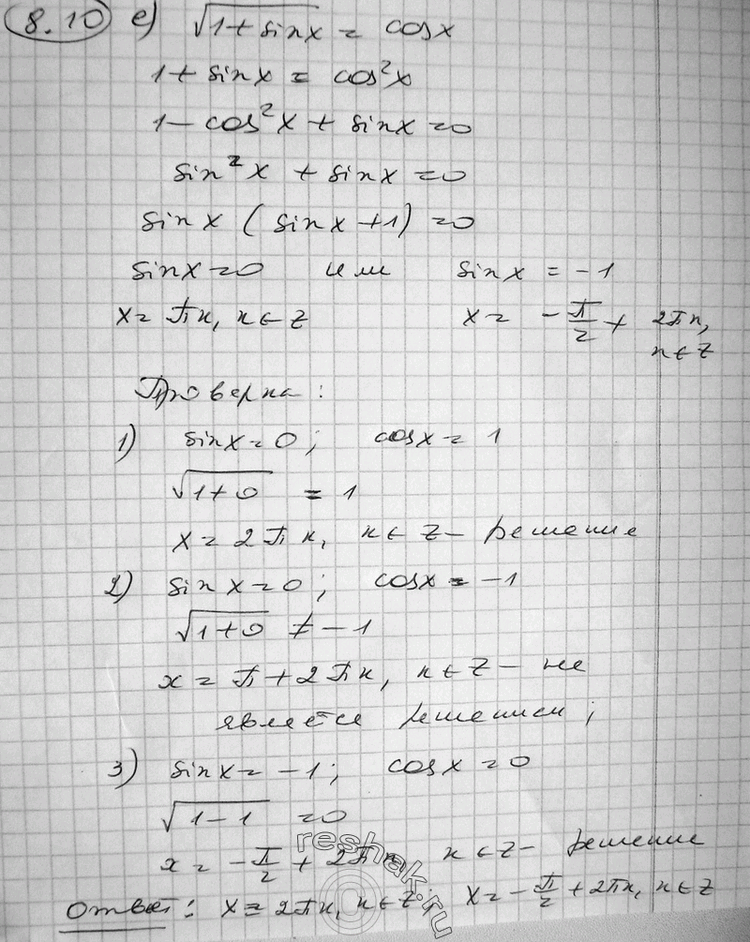 8.10 е) √(1+sinx) = cosx
1+sinx = cos²x
1-cos²x + sinx = 0
sin²x + sinx = 0
sinx (sinx+1) = 0
sinx = 0 или sinx = -1
x = πn, n∈Z x = -π/2 + 2πn,
n∈Z
Проверка:
1) sinx = 0; cosx = 1
√(1+0) = 1
x = 2πn, n∈Z - решение
2) sinx = 0; cosx = -1
√(1+0) ≠ -1
x = π + 2πn, n∈Z - не
является решением;
3) sinx = -1; cosx = 0
√(1-1) = 0
x = -π/2 + 2πn, n∈Z - решение
Ответ: x = 2πn, n∈Z; x = -π/2 + 2πn, n∈Z
reshak.ru